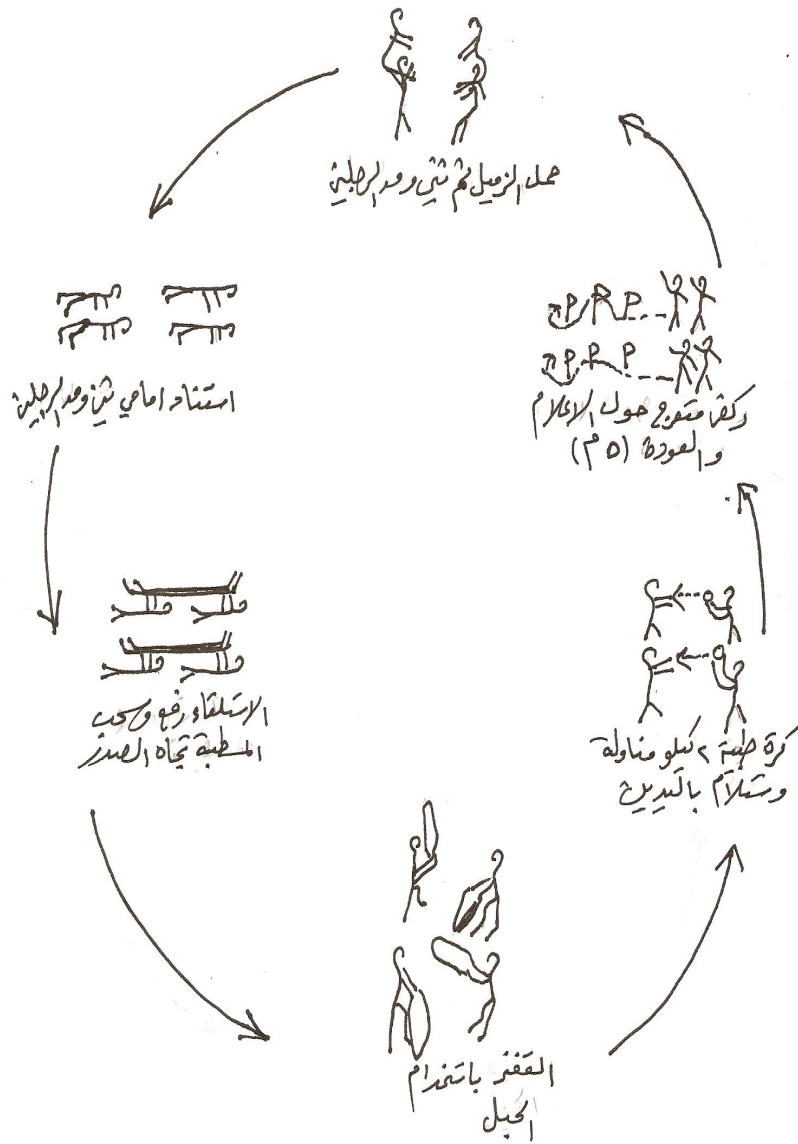 حمل الزميل ثم ثني ومد الرجلين
استناد امامي ثني ومد الرجلين
الاستلقاء رفع وسحب
المسطبة تجاه الصدر
القفز باستخدام
الحبل
كرة طبية ٢ كيلو مناولة
وستلام باليدين
ركض متعرج حول الاعلام
والعودة (٥م)
P P P
P P P